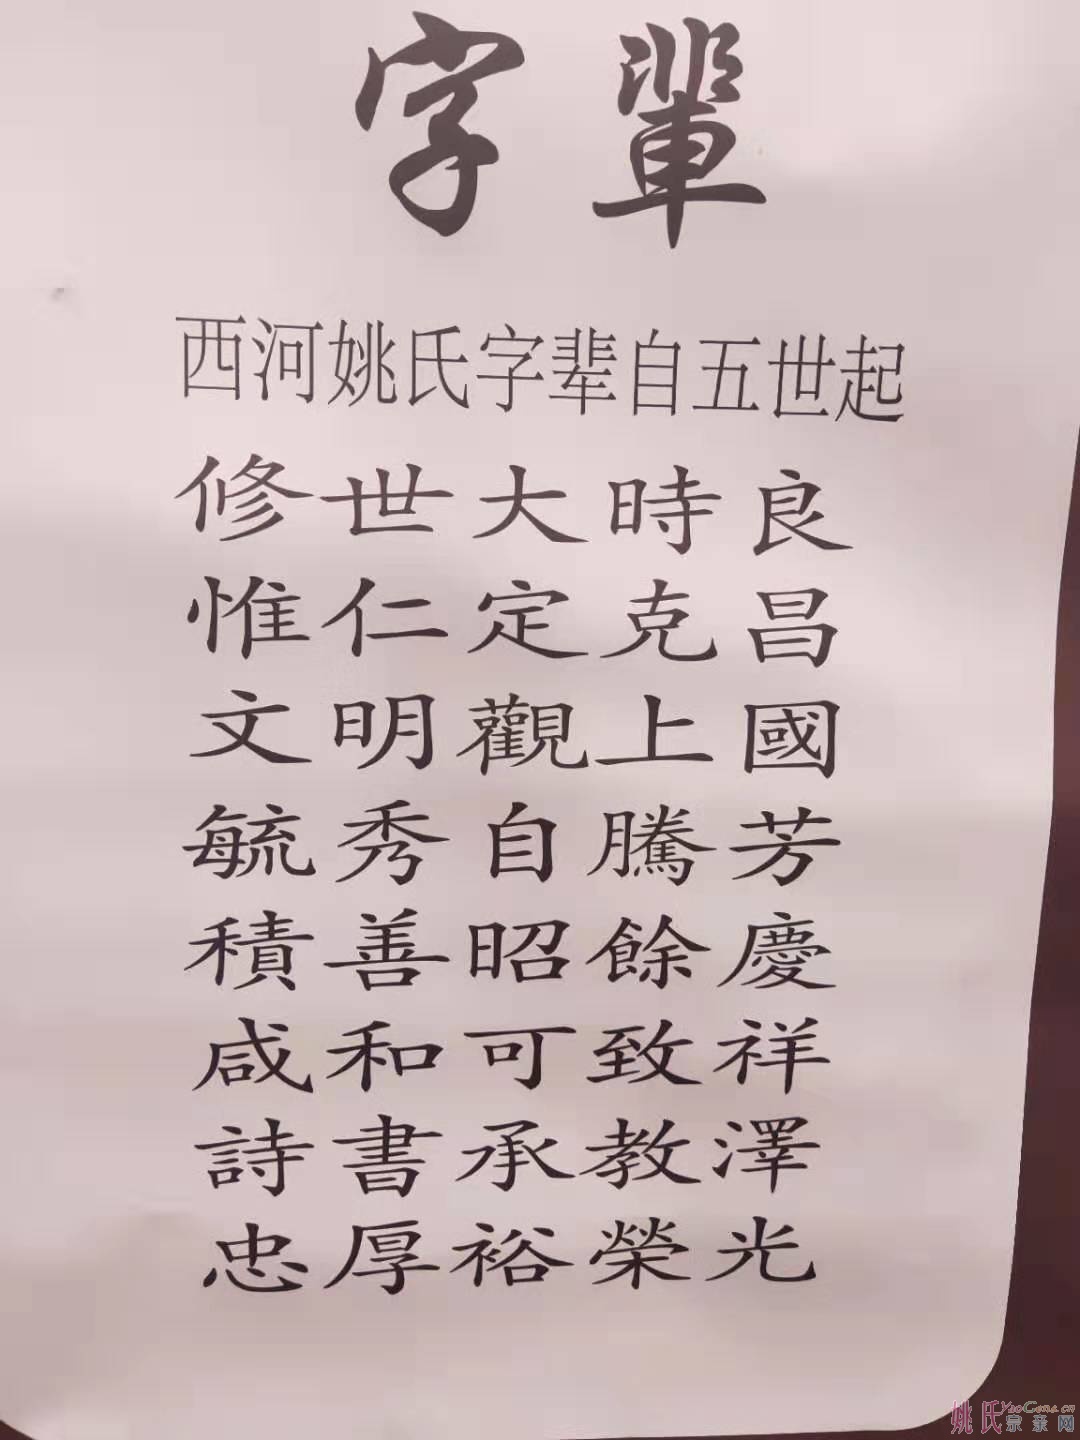 字輩
西河姚氏字辈自五世起
修世大時良
惟仁定克昌
文明觀上國
毓秀自騰芳
積善昭餘慶
咸和可致祥
詩書承教澤
忠厚裕榮光
姚氏YaoGens.cn
宗亲网